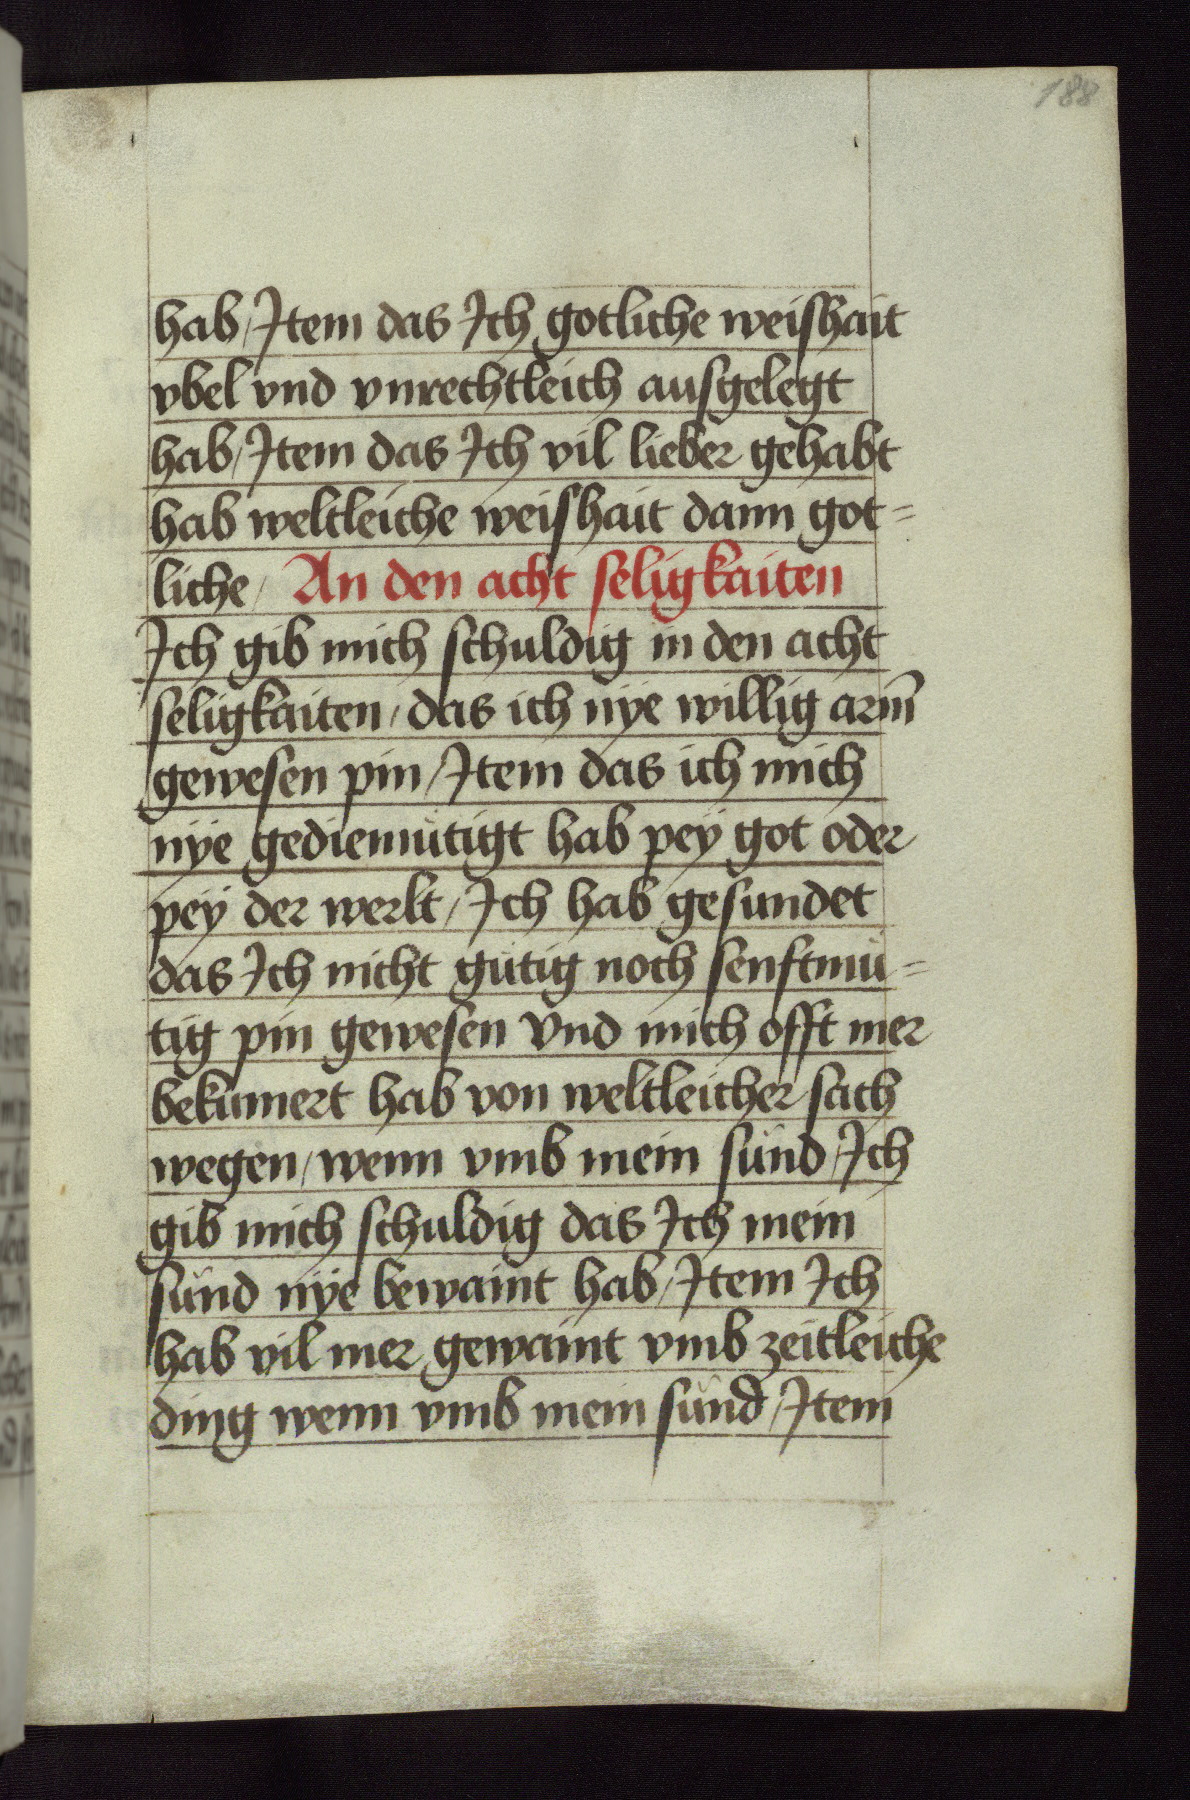 188
hab / Item das Ich gotliche weishait
vbel vnd vnrechtleich ausgelegt
hab / Item das Ich vil lieber gehabt
hab weltleiche weishait dann got=
liche / An den acht seligkaiten
Ich gib mich schuldig in den acht
seligkaiten / das ich nÿe willig arm̄
gewesen pin / Item das ich mich
nÿe gediemütigt hab peÿ got oder
peÿ der werlt / Ich hab gesundet
das Ich nicht gütig noch senftmü=
tig pin gewesen Vnd mich offt mer
bekümert hab von weltleicher sach
wegen / wenn vmb mein sünd / Ich
gib mich schuldig das Ich mein
sünd nÿe bewaint hab / Item Ich
hab vil mer gewaint vmb zeitleiche
ding wenn vmb mein sünd / Item